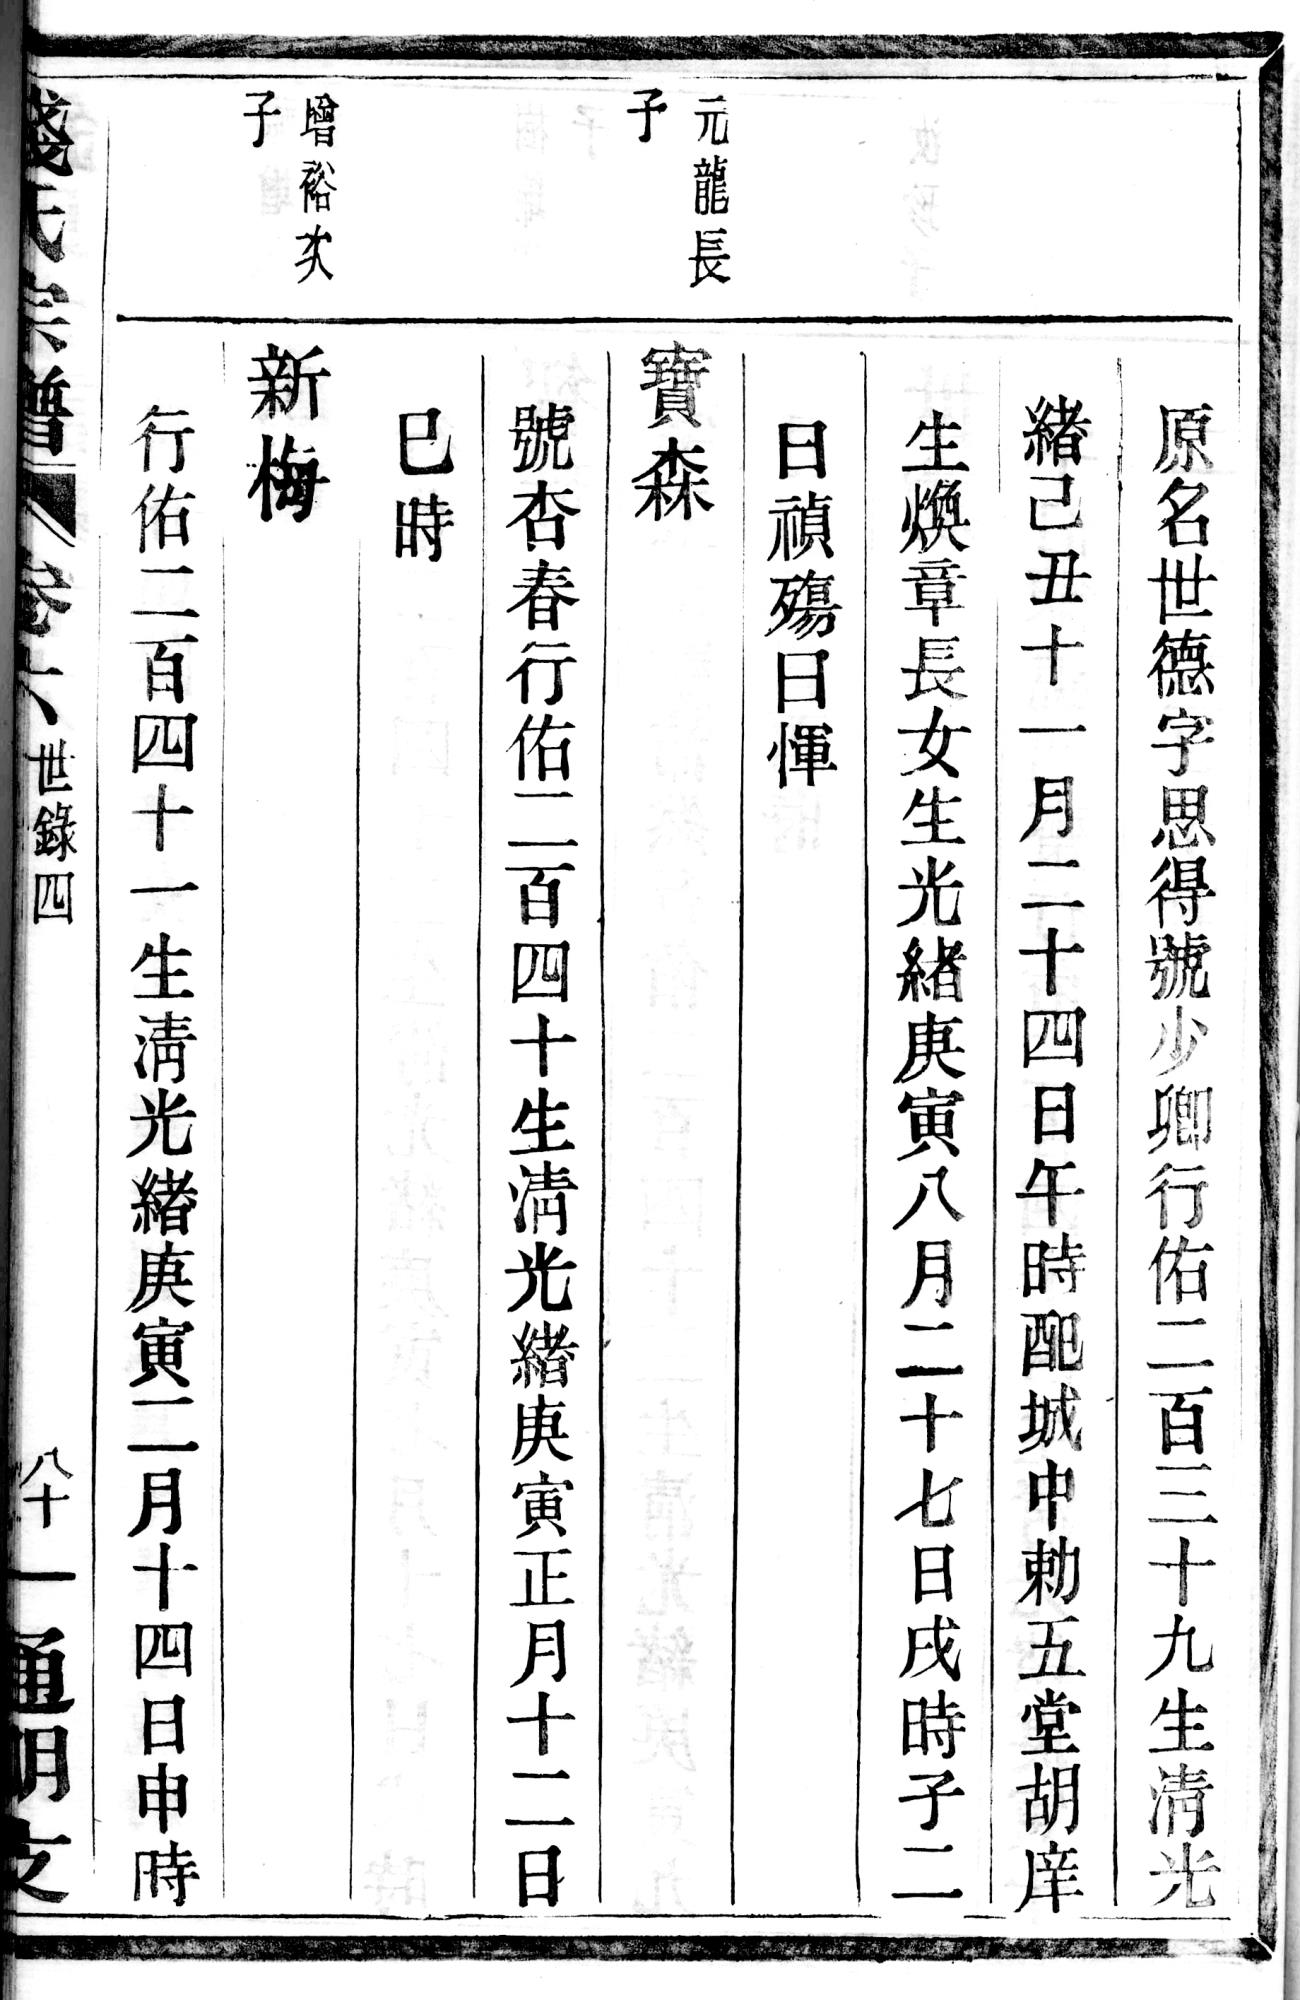 原名世德字思得號少卿行佑二百三十九生淸光
緖己丑十一月二十四日午時配城中勅五堂胡庠
生煥章長女生光緖庚寅八月二十七日戌時子二
曰禎殤曰惲
元龍長
子
寶森
號杏春行佑二百四十生淸光緖庚寅正月十二日
巳時
增裕次
子
新梅
行佑二百四十一生淸光緖庚寅二月十四日申時
錢氏宗譜 卷六 世錄四 八十一 通明文